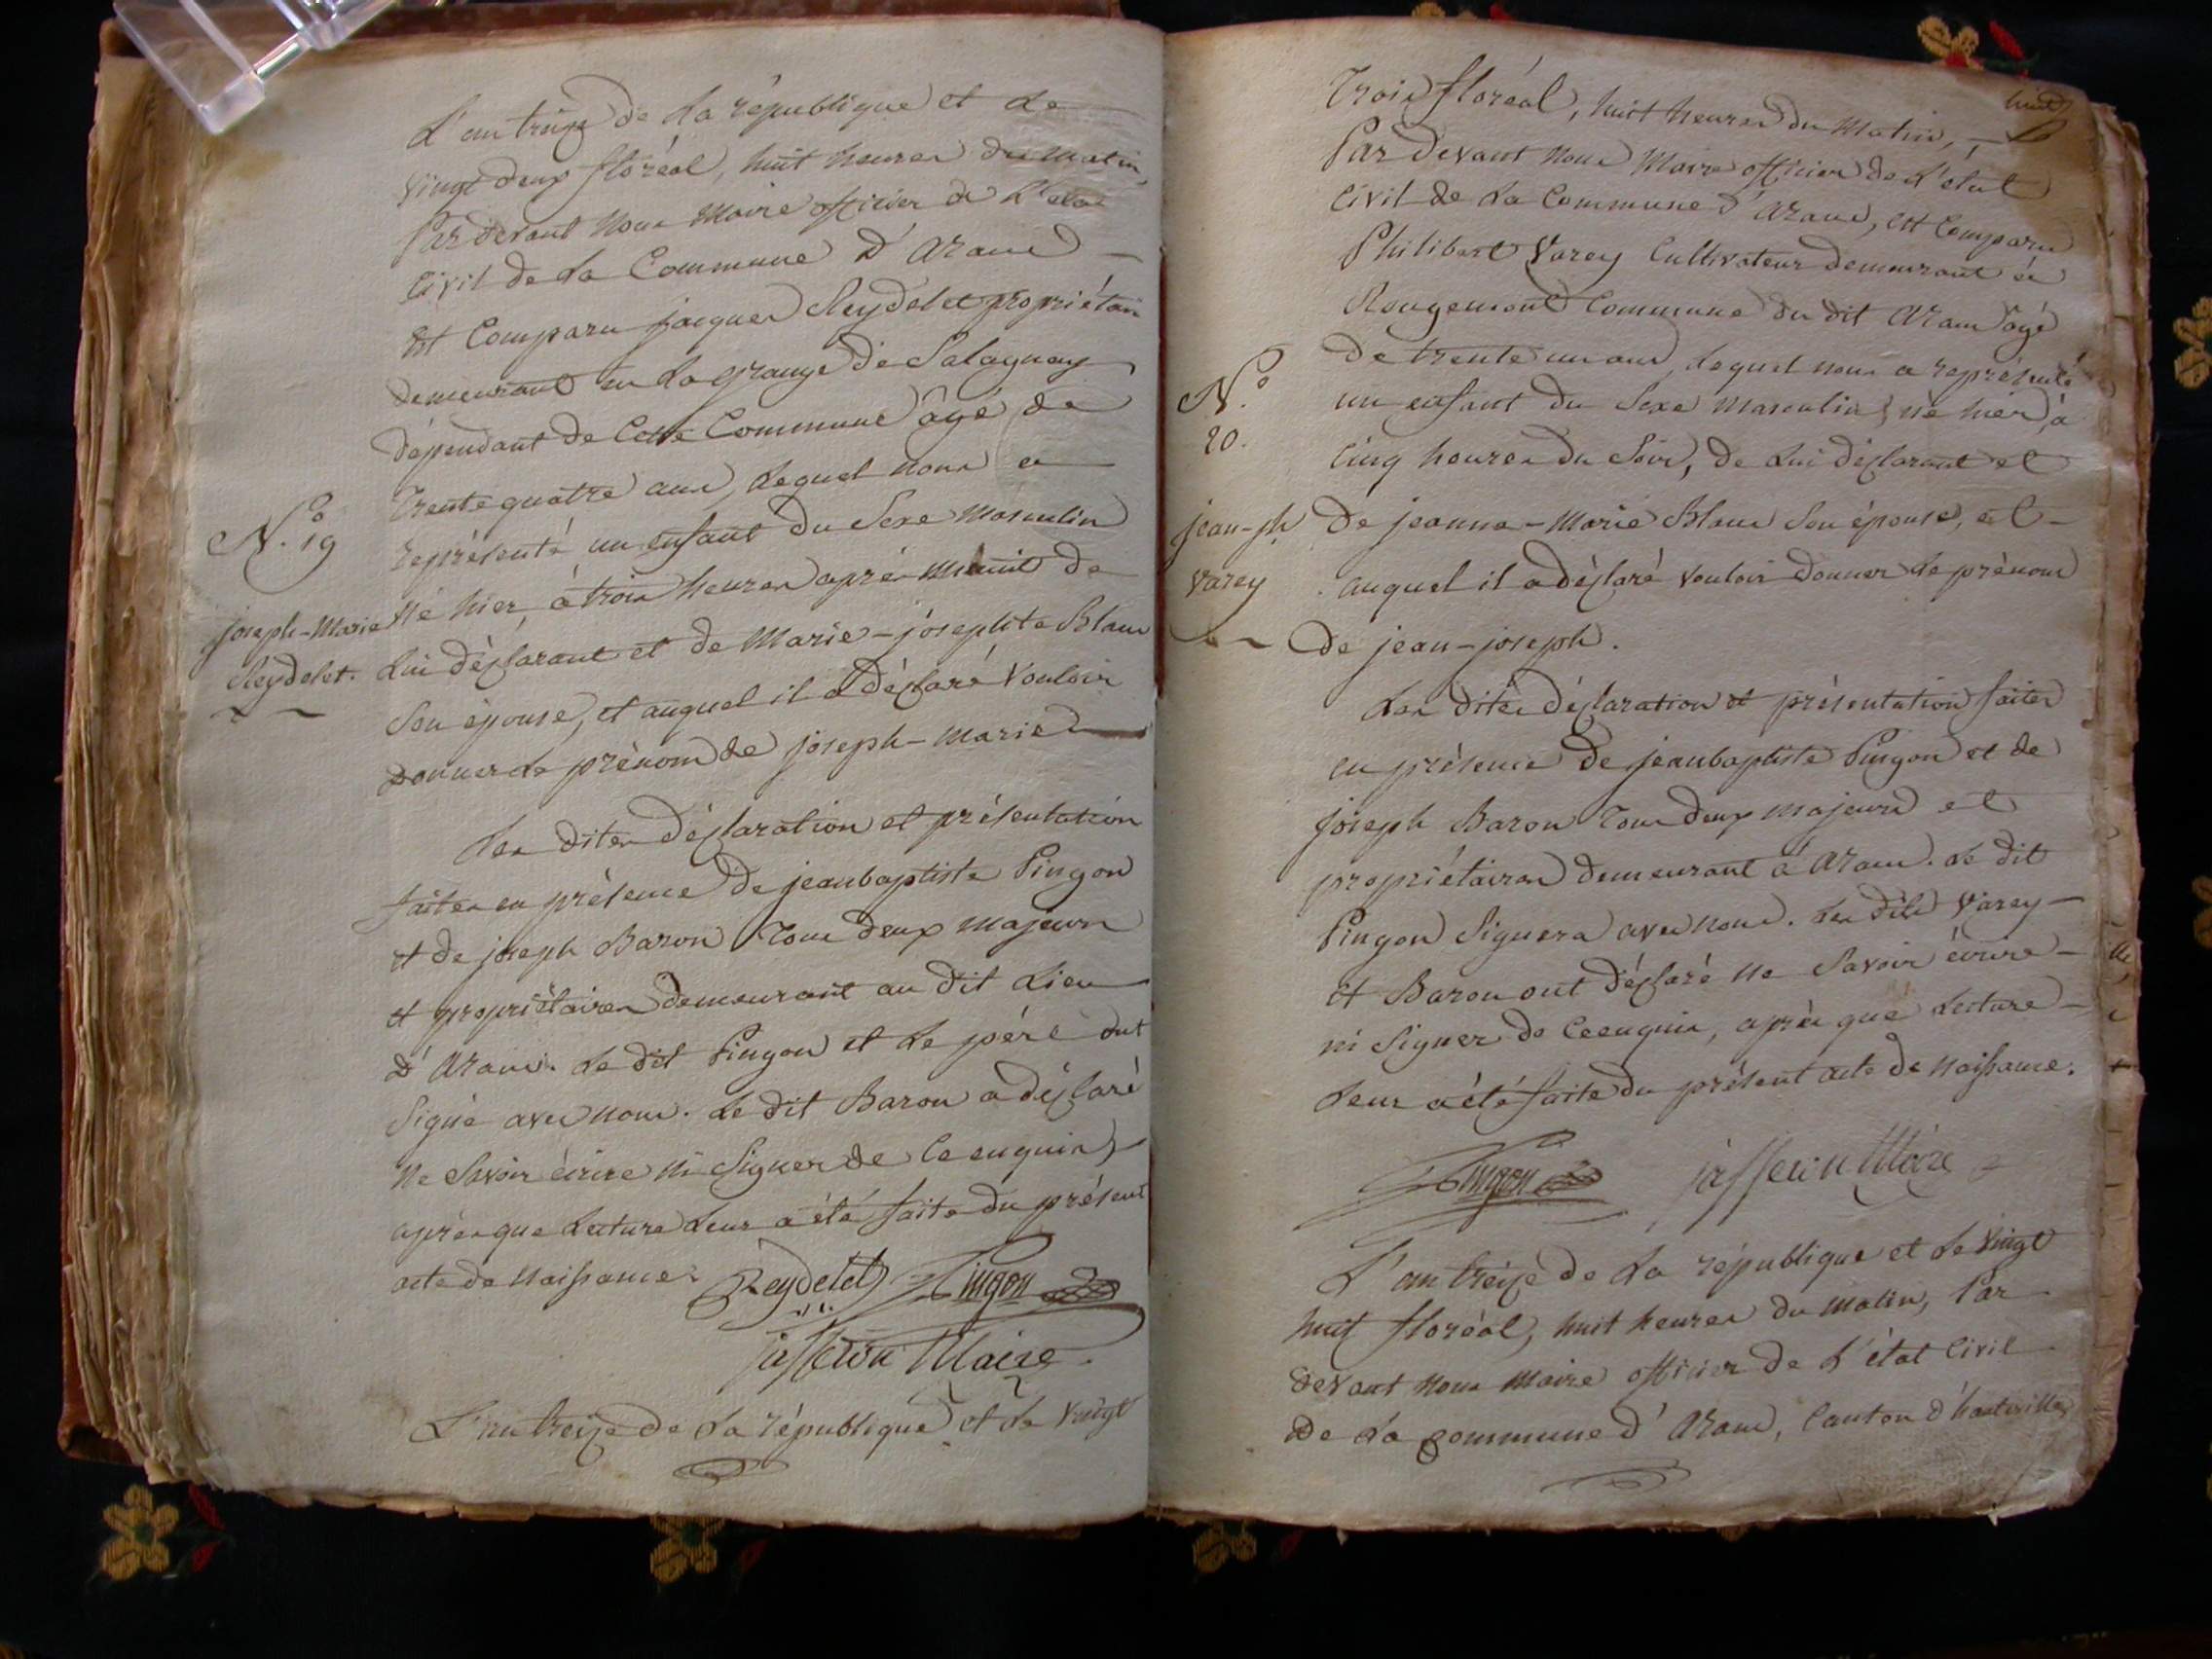 L'an treize de la république et le
vingt deux floréal, huit heures du matin,
Par devant nous Maire officier de l'état
Civil de la Commune d'Aranc
Est Comparu jacques Reydelet propriétaire
demeurant en la grange de Palagnay
dépendant de Cette Commune âgé de
Trente quatre ans, lequel nous a
N.o 19
représenté un enfant du Sexe Masculin
né hier, à trois heures après Minuit de
joseph-Marie
Reydelet.
lui déclarant et de Marie-josephte Blanc
Son épouse, et auquel il a déclaré Vouloir
donner le prénom de joseph-Marie
Les dites déclaration et présentation
faites en présence de jeanbaptiste Pingon
et de joseph Baron Tous deux majeurs
et propriétaires demeurant au dit Lieu
d'Aranc. Le dit Pingon et le père ont
Signé avec nous. Le dit Baron a déclaré
Ne Savoir écrire ni Signer de Ce enquis,
après que Lecture Leur a été faite du présent
acte de Naissance. Reydelet Pingon
jasseron Maire
L'an treize de la république et le Vingt
huit
Trois floréal, huit heures du Matin,
Par devant nous Maire officier de l'état
Civil de la Commune d'Aranc, est Comparu
Philibert Varey Cultivateur demeurant à
Rougemont Commune du dit Aranc âgé
de trente un ans, lequel nous a représenté
N.o
20.
un enfant du Sexe Masculin, né hier, à
Cinq heures du Soir, de lui déclarant et
jean-jh
Varey
de jeanne-Marie Blanc Son épouse, et
auquel il a déclaré Vouloir donner le prénom
de jean-joseph.
Les dites déclaration et présentation faites
en présence de jeanbaptiste Pingon et de
joseph Baron Tous deux majeurs et
propriétaires demeurant à Aranc. Le dit
Pingon Signera avec nous. Les dits Varey
et Baron ont déclaré Ne Savoir écrire
ni Signer de Ce enquis, après que Lecture
Leur a été faite du présent acte de Naissance.
Pingon jasseron Maire
L'an treize de la république et le Vingt
huit floréal, huit heures du Matin, Par
devant nous Maire officier de l'état Civil
de la Commune d'Aranc, Canton d'hauteville,